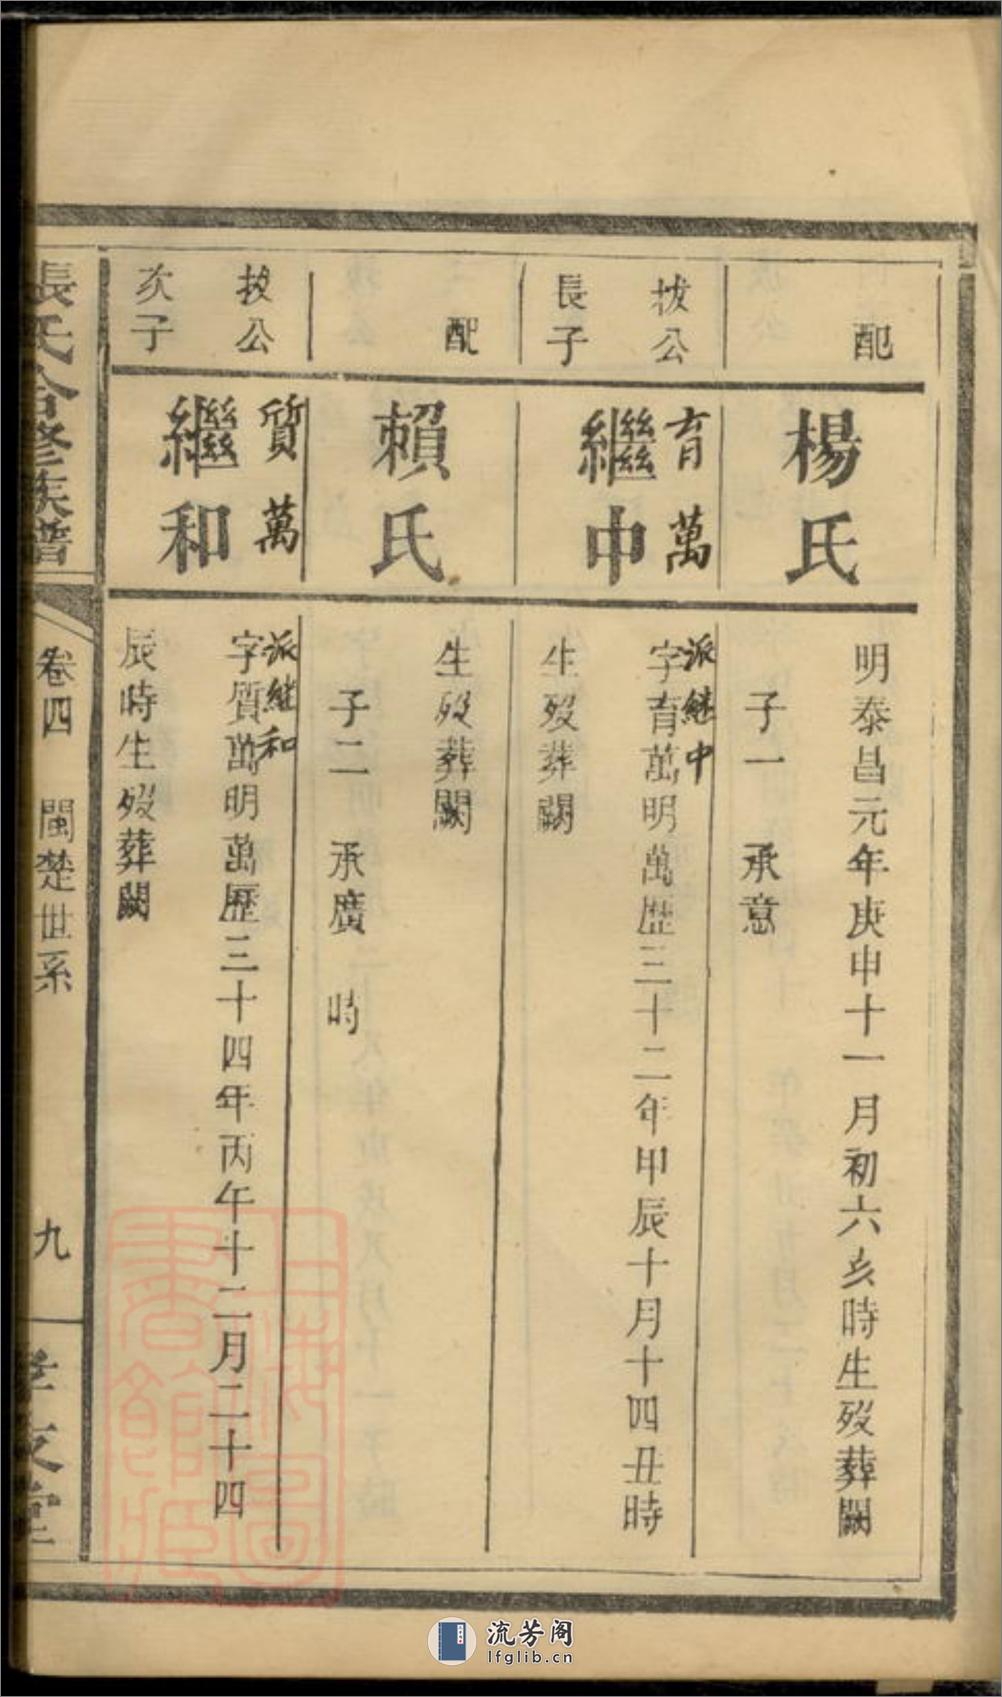 配
楊氏
明泰昌元年庚申十一月初六亥時生歿葬闕
子一 承意
拔公
長子
育萬
繼中
派継中
字育萬明萬歷三十二年甲辰十月十四丑時
生歿葬闕
配
賴氏
生歿葬闕
子二 承廣 時
拔公
次子
質萬
繼和
派継和
字質萬明萬歷三十四年丙午十二月二十四
辰時生歿葬闕
張氏合修族譜
卷四 閩楚世系
九
孝友堂
上海圖
書館藏
流芳阁
lfglib.cn